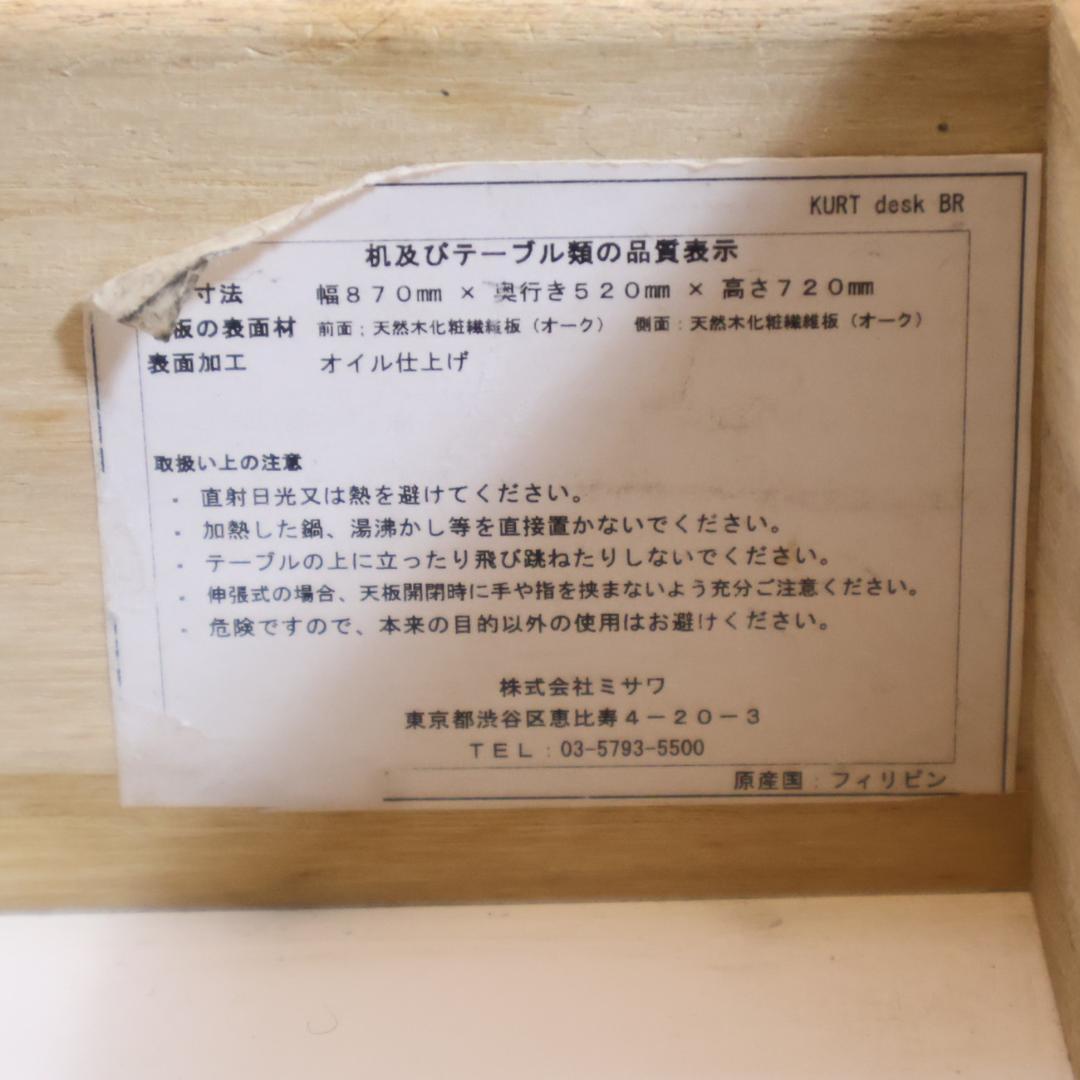 KURT desk BR
机及びテーブル類の品質表示
寸法 幅870mm × 奥行き520mm × 高さ720mm
板の表面材 前面：天然木化粧繊維板（オーク） 側面：天然木化粧繊維板（オーク）
表面加工 オイル仕上げ
取扱い上の注意
・ 直射日光又は熱を避けてください。
・ 加熱した鍋、湯沸かし等を直接置かないでください。
・ テーブルの上に立ったり飛び跳ねたりしないでください。
・ 伸張式の場合、天板開閉時に手や指を挟まないよう充分ご注意ください。
・ 危険ですので、本来の目的以外の使用はお避けください。
株式会社ミサワ
東京都渋谷区恵比寿4－20－3
TEL：03-5793-5500
原産国：フィリピン